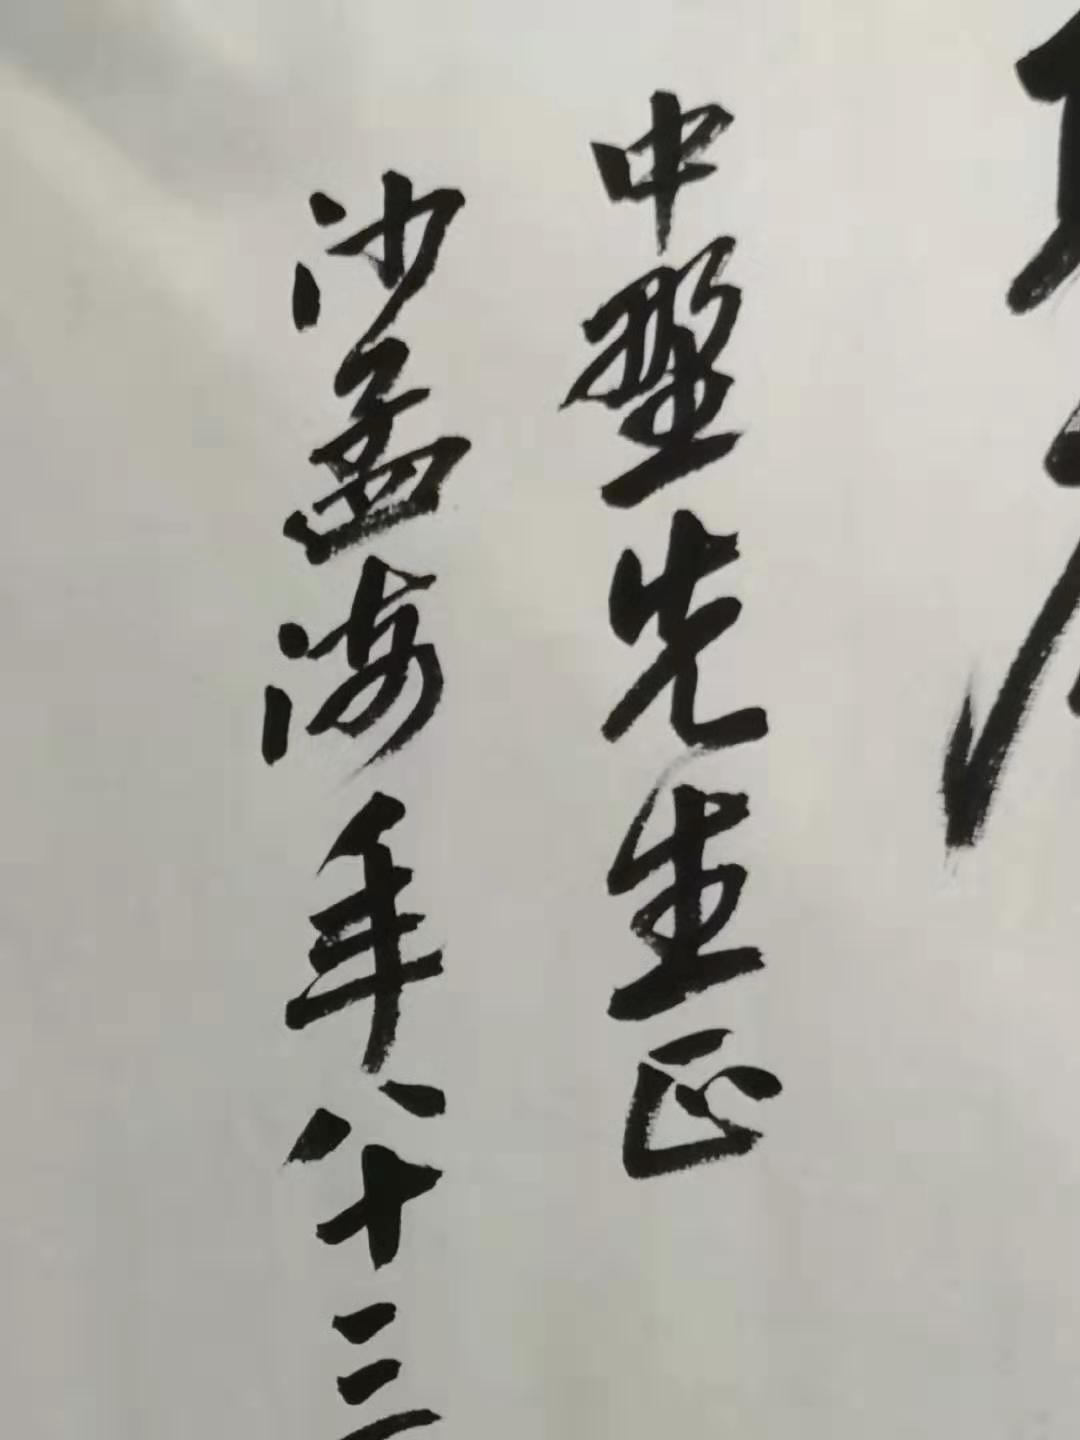 中野先生正
沙孟海年八十三